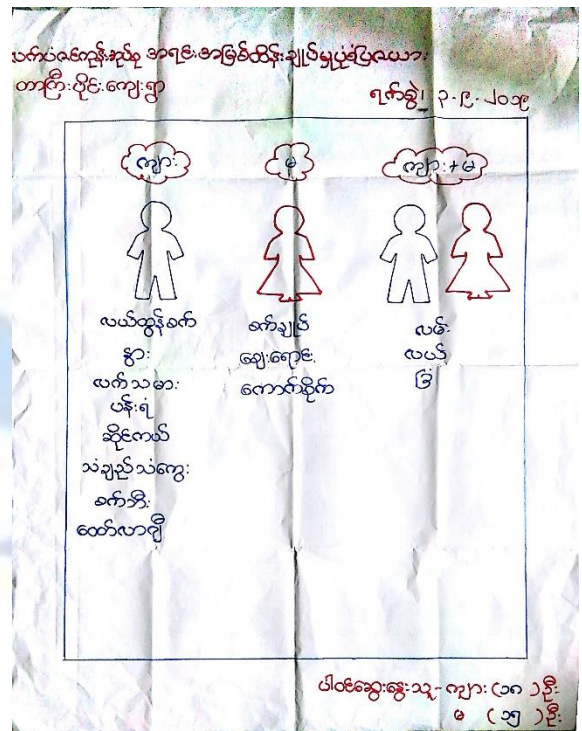 လက်ပံဇင်ကုန်းအုပ်စု အရင်းအမြစ်ထိန်းချုပ်မှုပုံစံပြဇယား
တာကြီးပိုင်းကျေးရွာ
ရက်စွဲ၊ ၃-၉-၂၀၁၉
ကျား
မ
ကျား+မ
လယ်ထွန်စက်
နွား
လက်သမား
ပန်းရံ
ဆိုင်ကယ်
သံချည်သံကွေး
စက်ဘီး
ထော်လာဂျီ
စက်ချုပ်
ဈေးရောင်း
ကောက်စိုက်
လမ်း
လယ်
ခြံ
ပါဝင်ဆွေးနွေးသူ- ကျား (၁၈) ဦး
မ (၁၅) ဦး